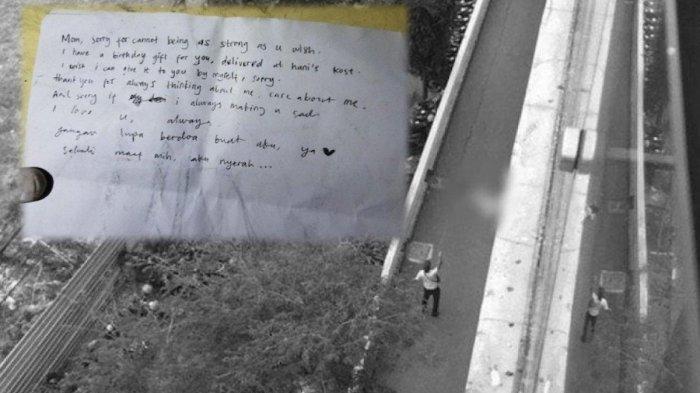 Mom, sorry for cannot being as strong as u wish.
I have a birthday gift for you, delivered at hani's kost.
I wish i can give it to you by myself, sorry.
thank you for always thinking about me, care about me.
And sorry if i always making u sad
I love u, always
Jangan lupa berdoa buat aku, ya ♥
Sekali maaf mih, aku nyerah...